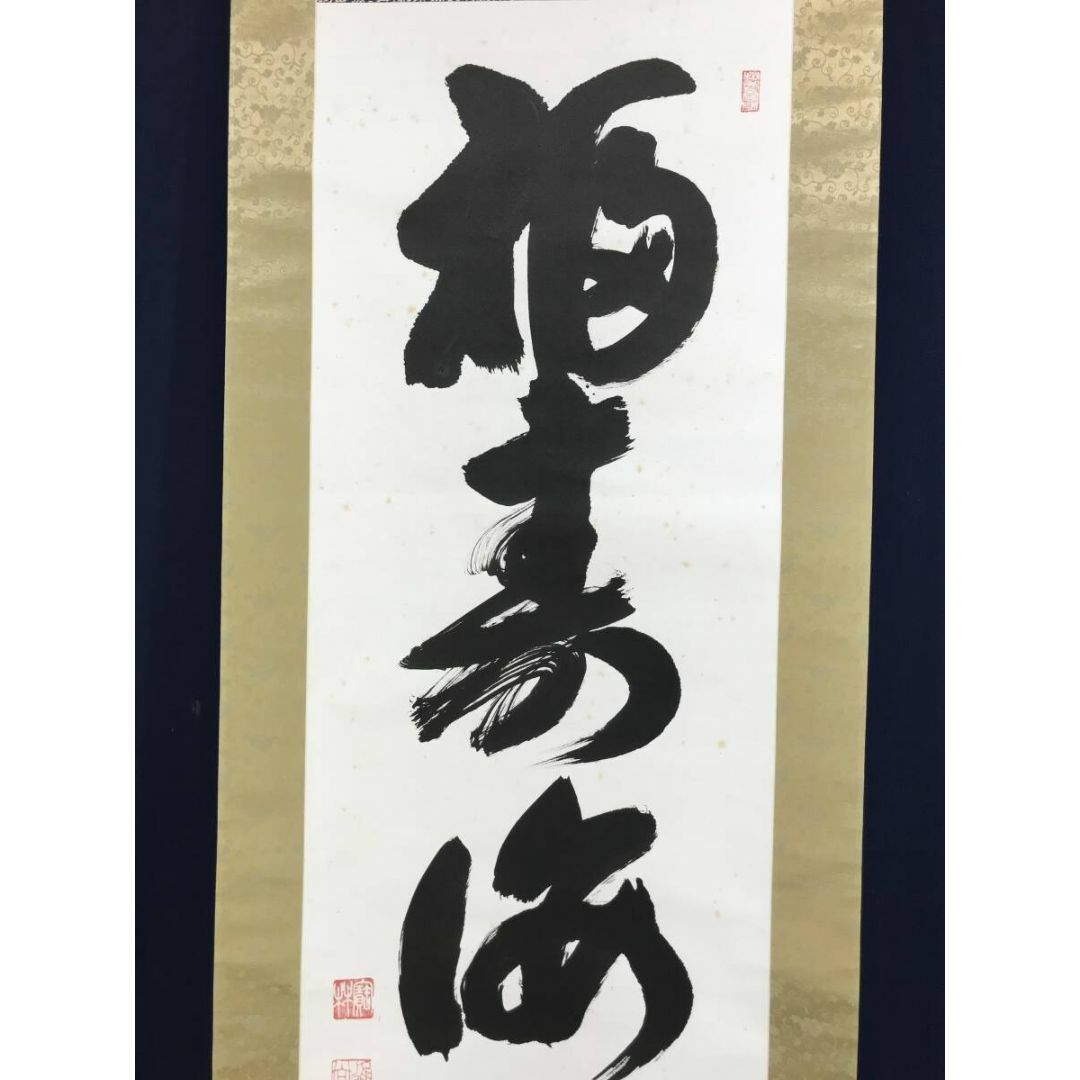 福寿海